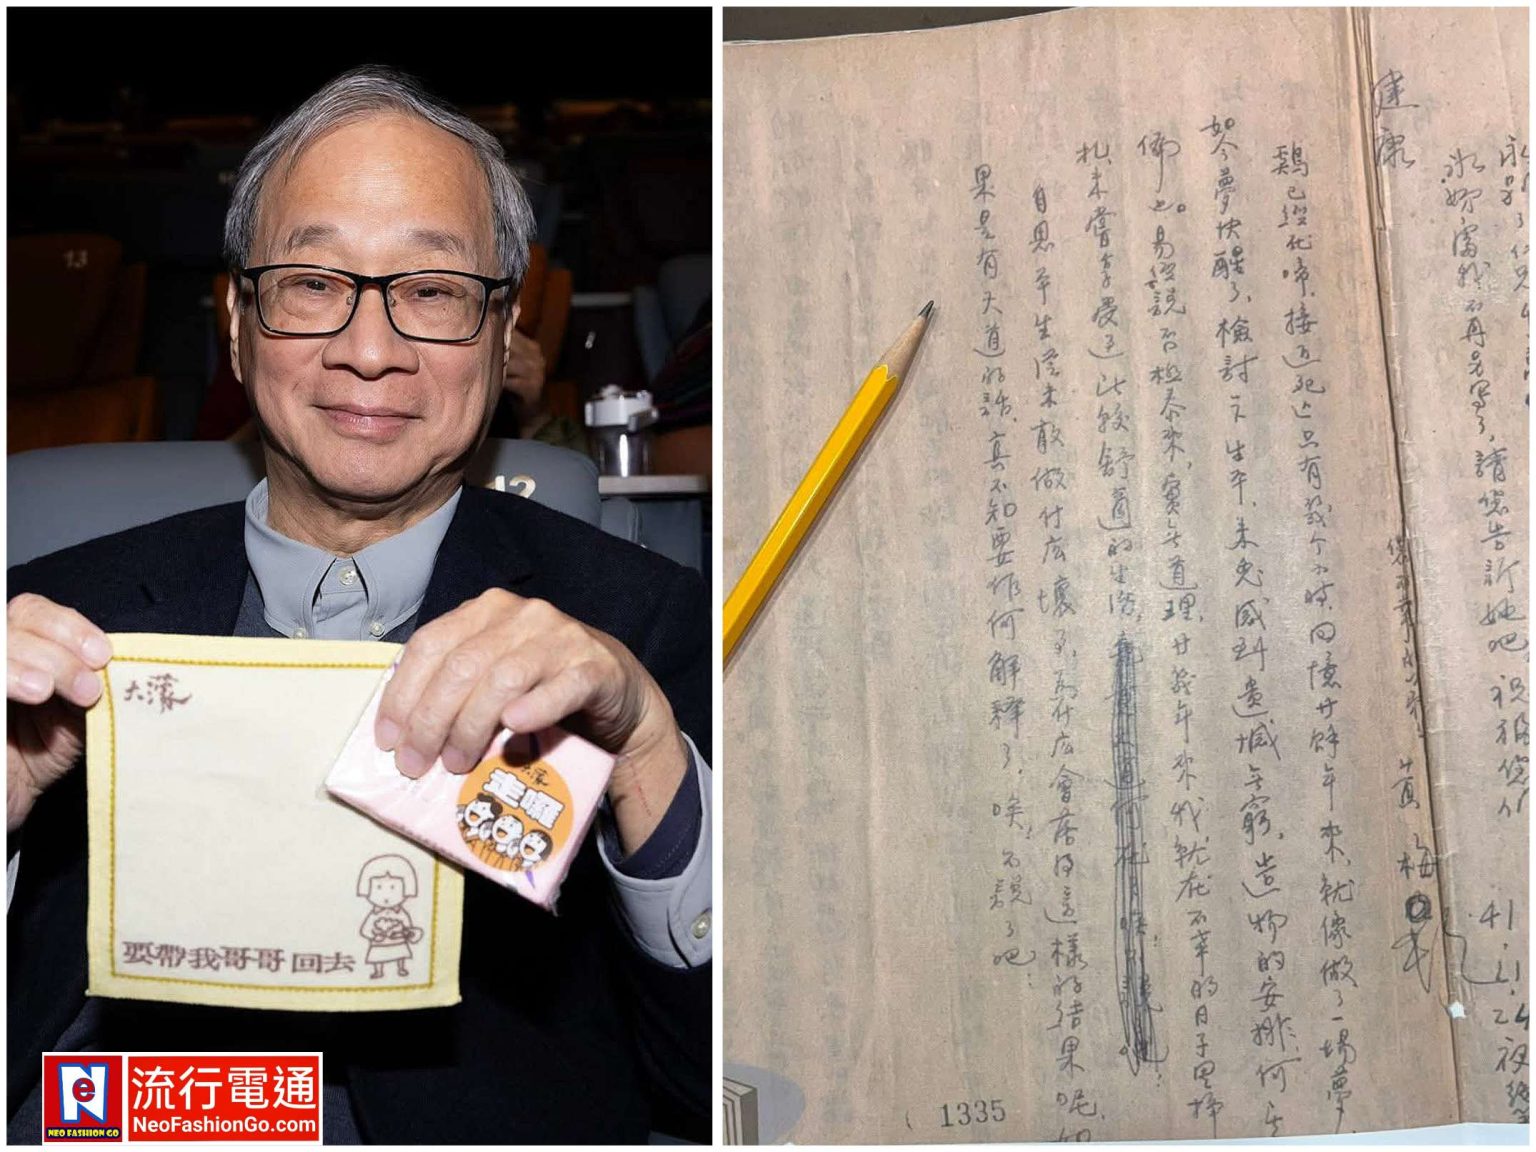 13
12
大濛
大濛
走囉
要帶我哥哥回去
Ne
NEO FASHION GO
流行電通
NeoFashionGo.com
永別了
我不再另寫了,請您告訴她吧,祝祖您们
建康
黃梅
41.11.24夜
鷄已經化啼,接近死亡只有幾个小時,回憶廿餘年來,就像做了一場夢,
如今夢快醒了,檢討一下生平,未免感到遺憾無窮,造物的安排,何其
佛也。易經說否極泰來,實無道理,廿幾年來我就在不幸的日子里掙
扎,未嘗享受过比較舒適的生活,
自思平生從未敢做什広壞事,為什広會落得這樣的結果呢,如
果是有天道的話,真不知要作何解釋了,唉!不說了吧!
1335